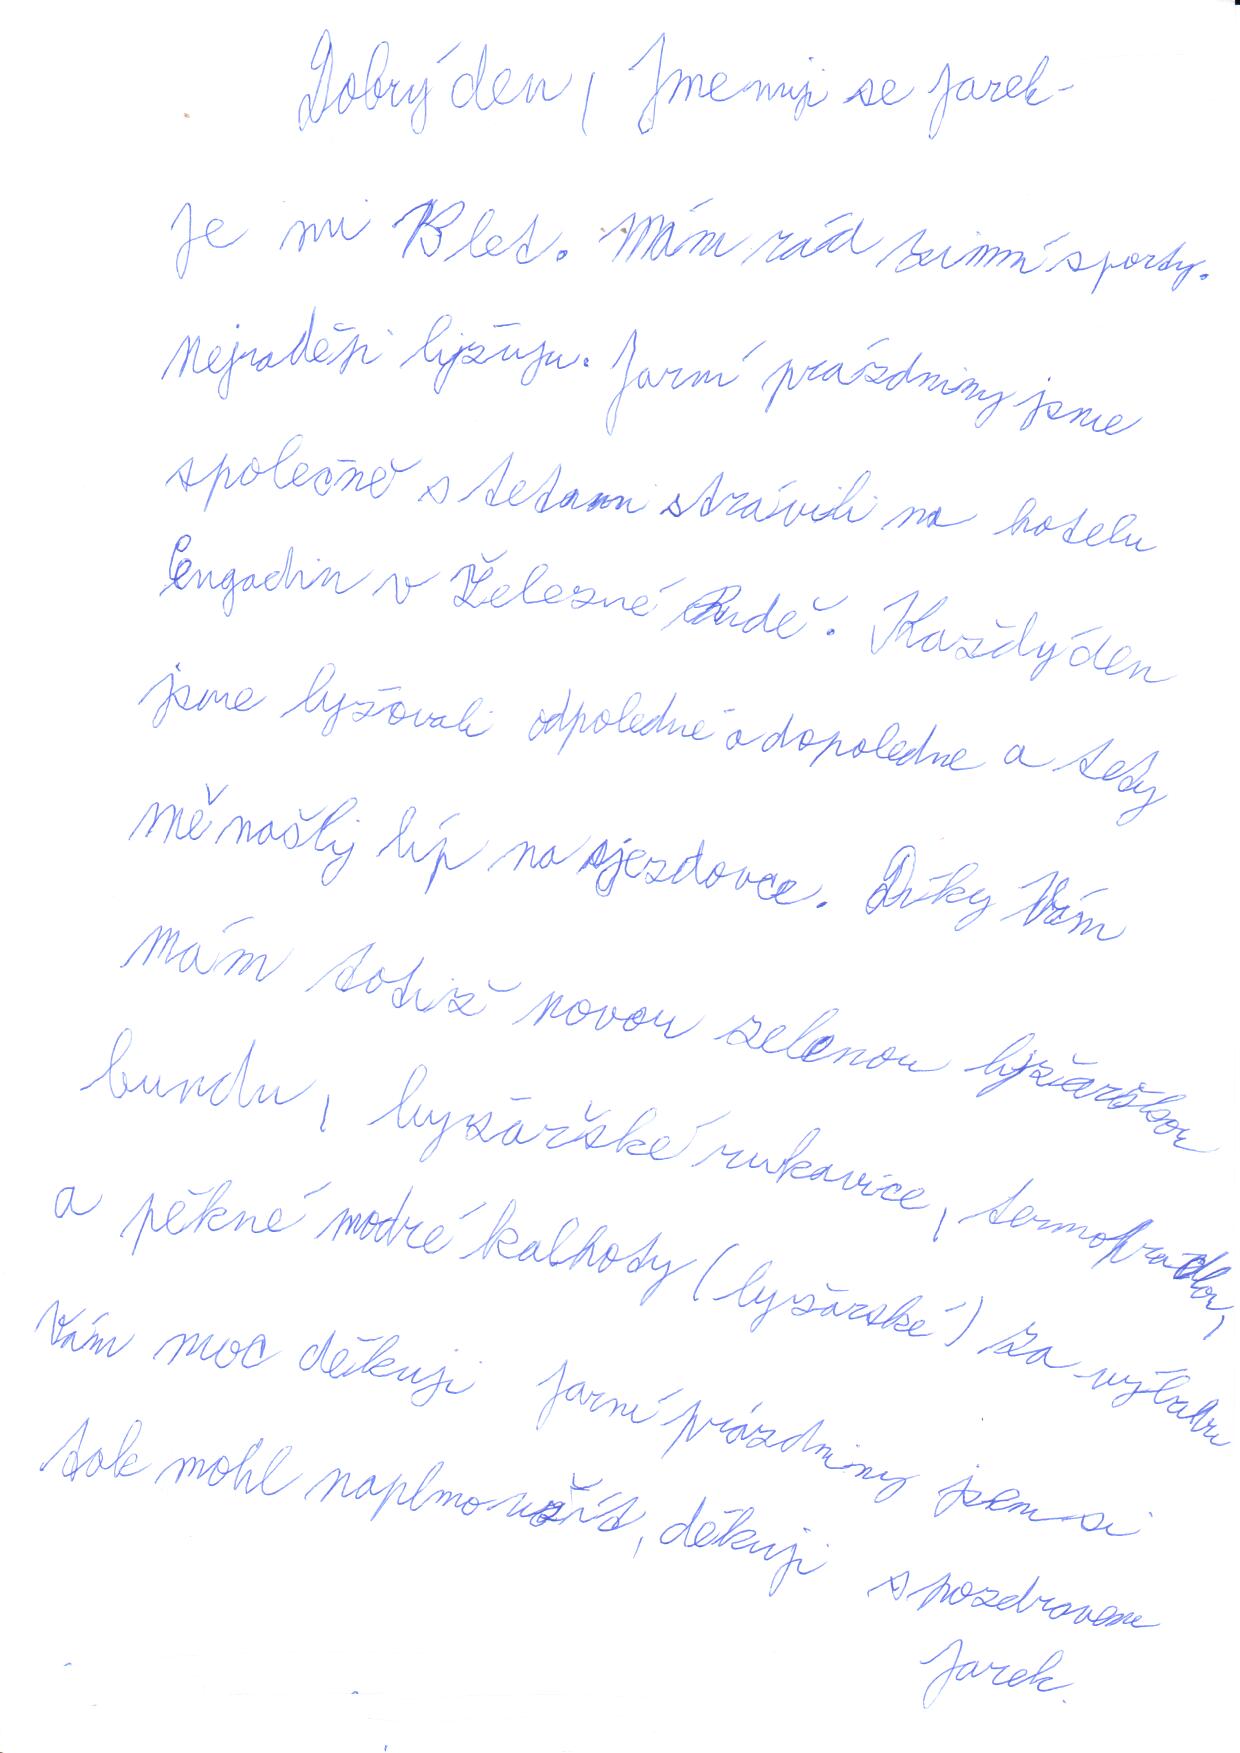 Dobrý den, Jmenuji se Jarek
je mi let. Mám rád zimní sporty.
nejraději lyžuju. Jarní prázdniny jsme
společně s tetami strávili na hotelu
Engadin v Železné Rudě. Každý den
jsme lyžovali odpoledne a dopoledne a tety
mě našly líp na sjezdovce. Díky Vám
mám totiž novou zelenou lyžařškou
bundu, lyžářské rukavice, termopradlou,
a pěkné modré kalhoty (lyžarské) za výbavu
Vám moc děkuji Jarní prázdniny jsem si
tak mohl naplno užít, děkuji
s pozdravem
Jarek.